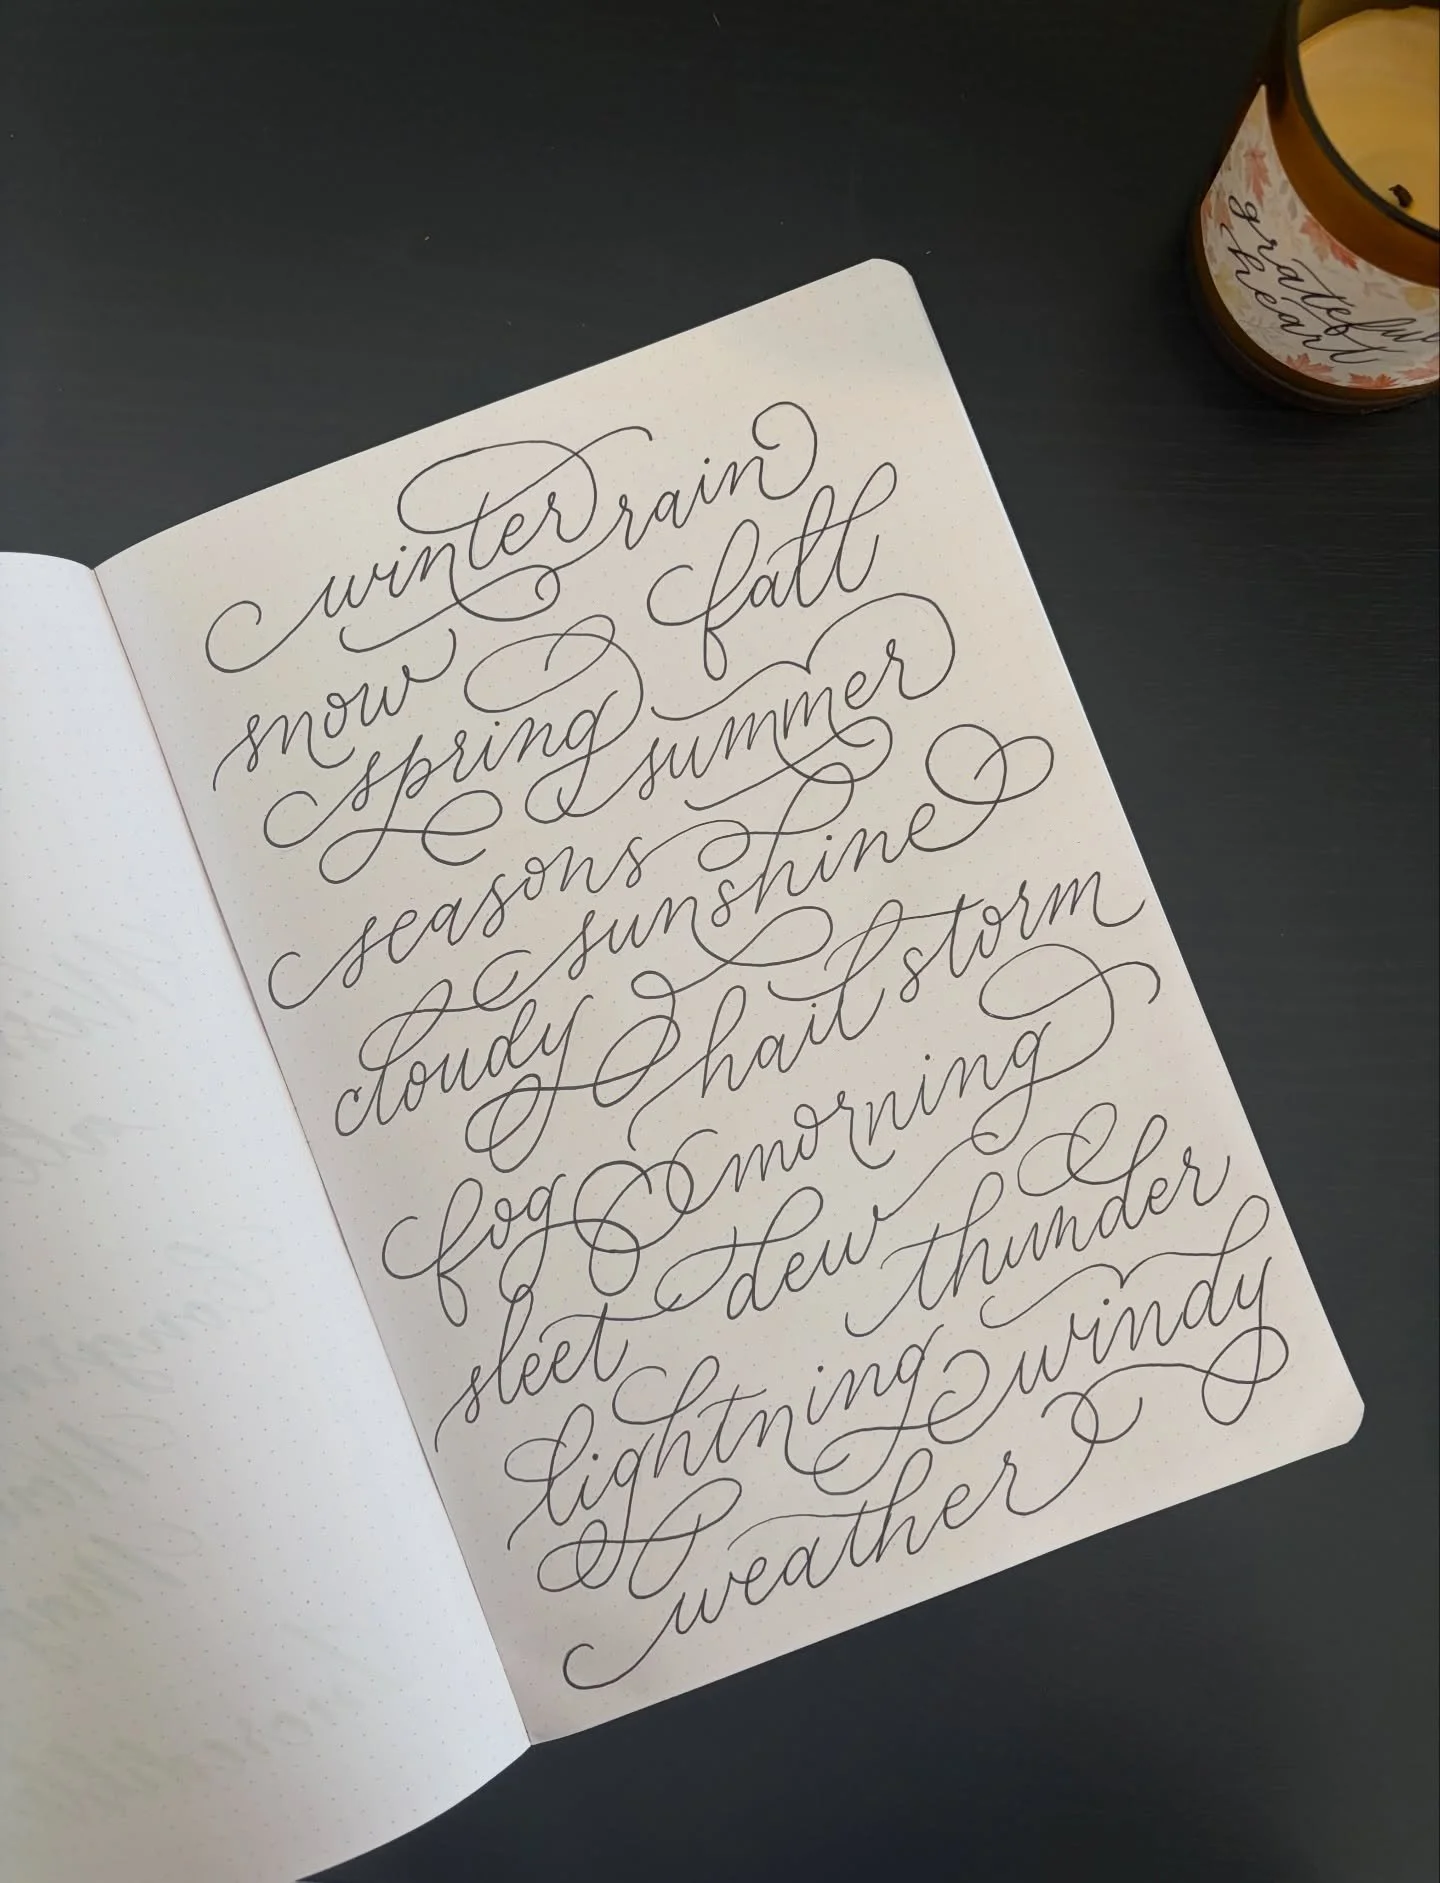 grateful
heart
winter rain
snow fall
spring summer
seasons sunshine
cloudy hail storm
fog morning
sleet dew thunder
lightning windy
weather